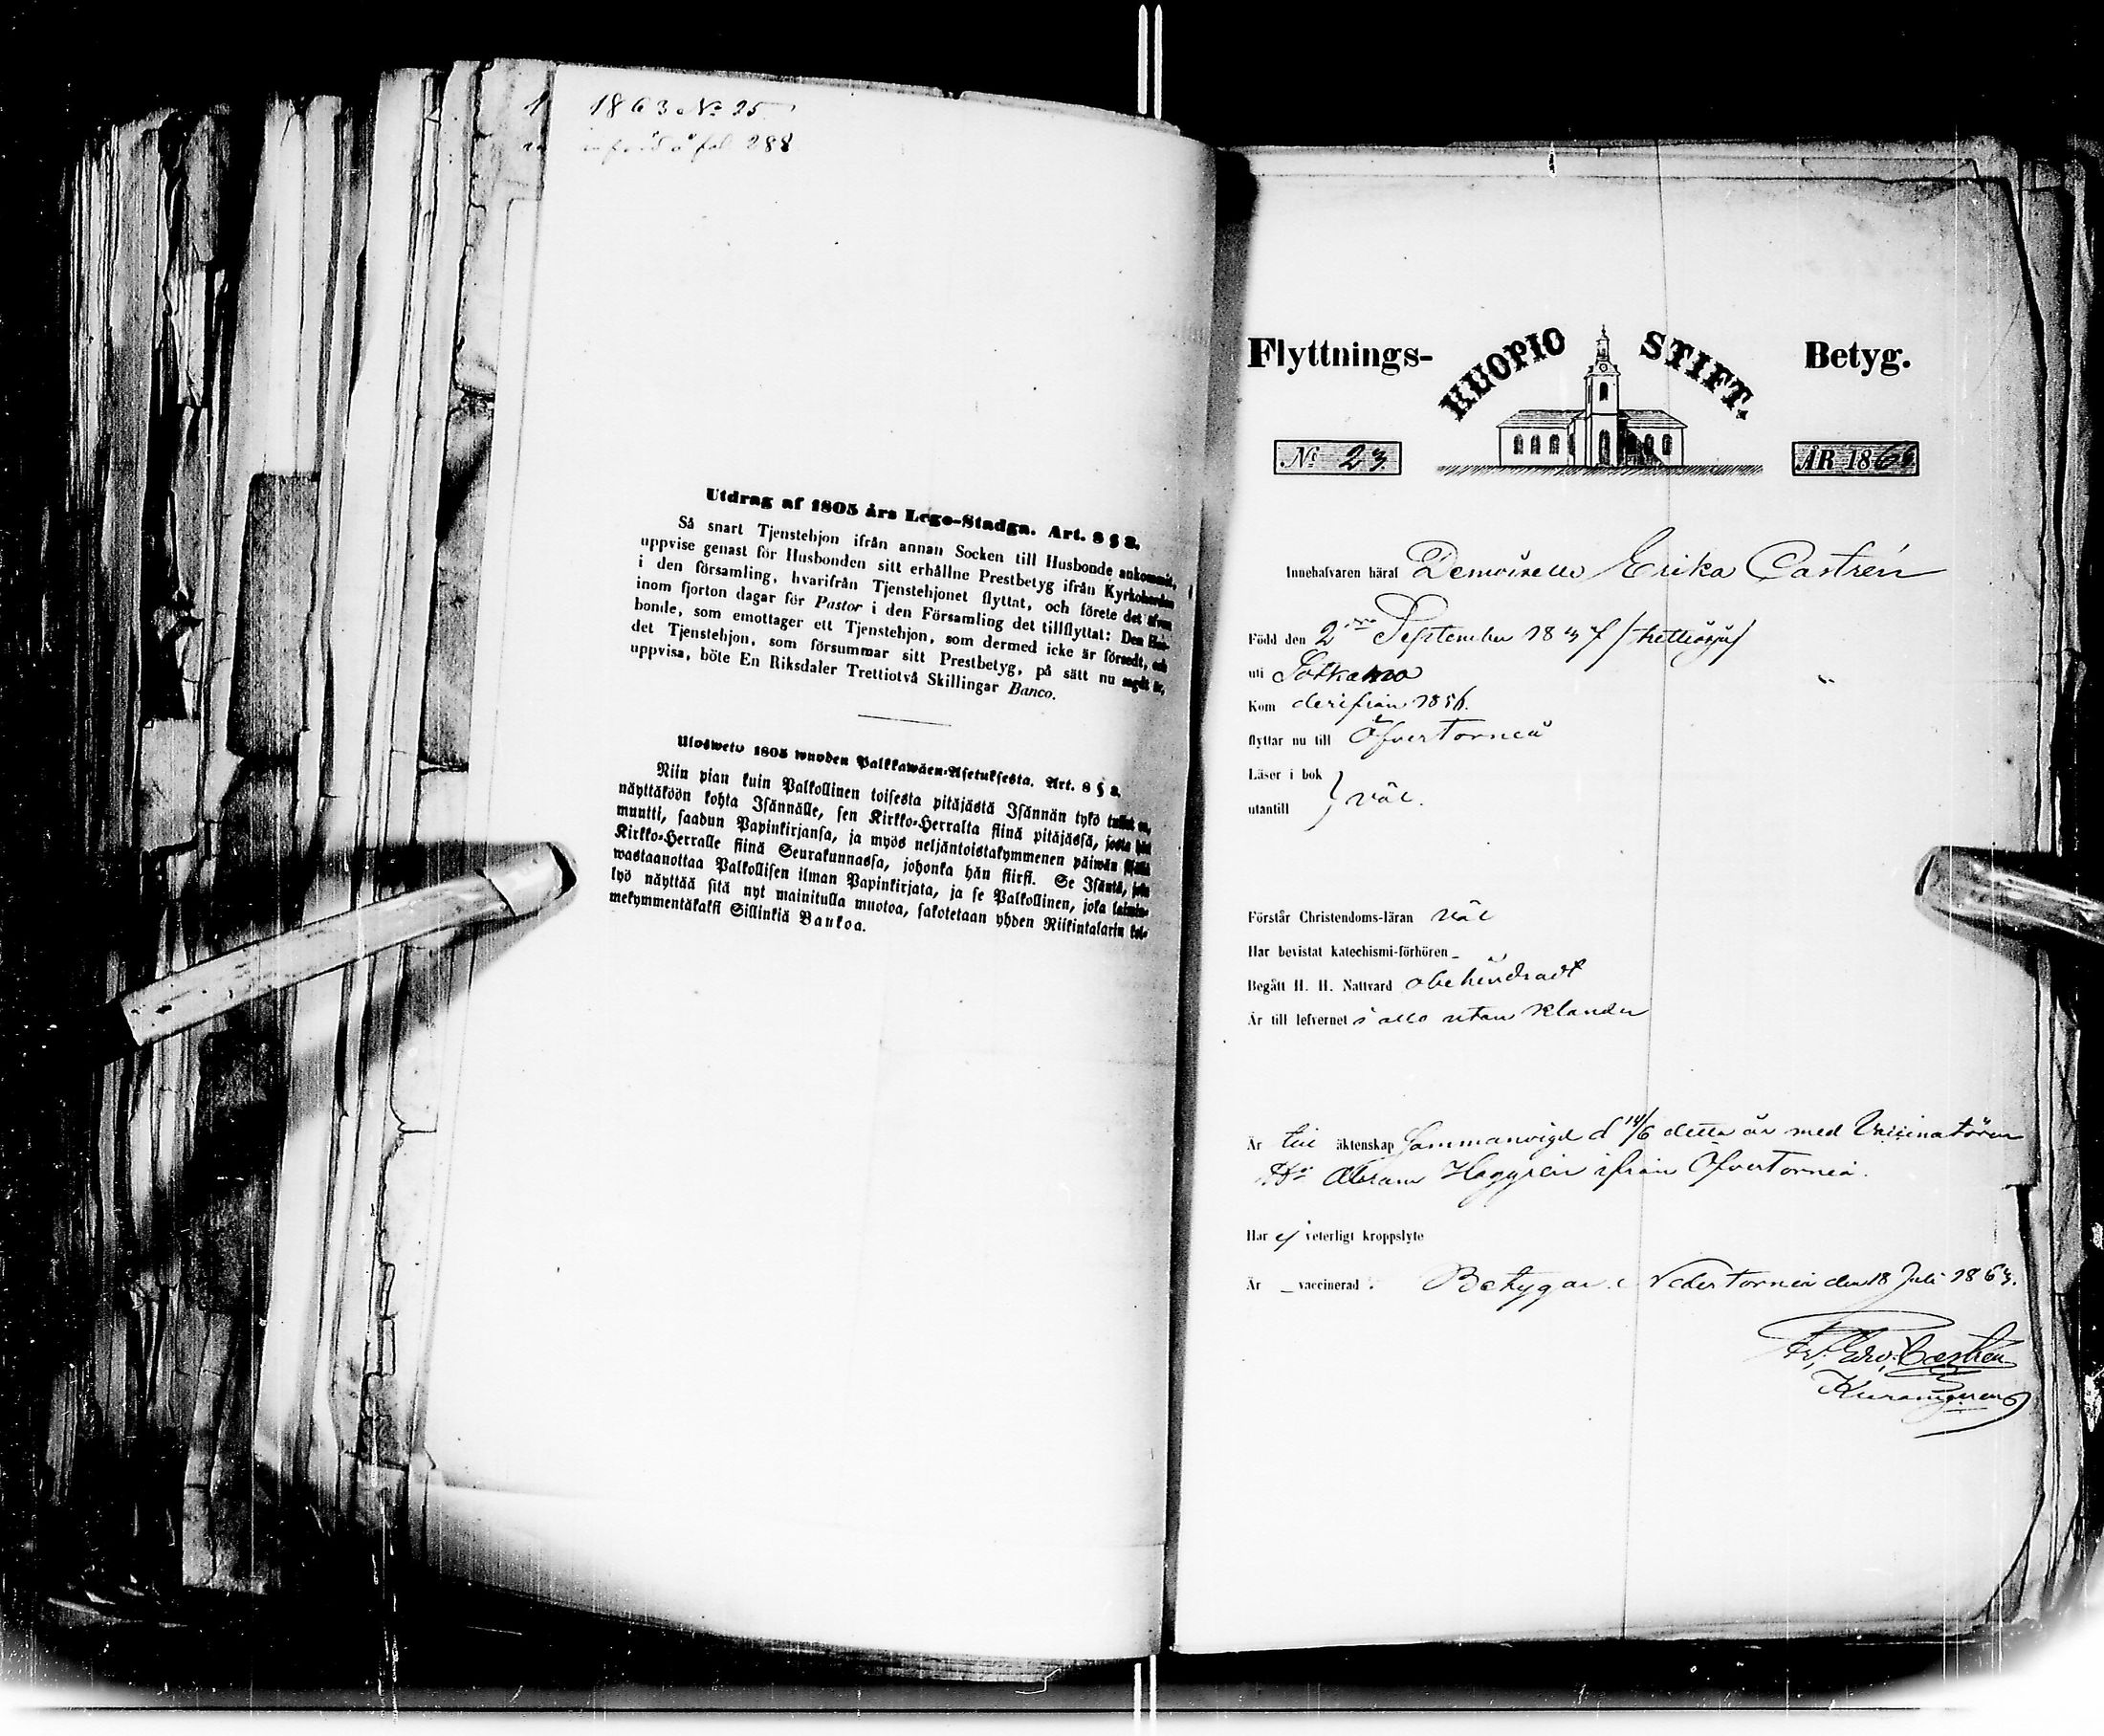 1863 No 25
införd å fol 288
Utdrag af 1805 års Lego-Stadga. Art. 8 § 8.
Så snart Tjenstehjon ifrån annan Socken till Husbonde ankommit,
uppvise genast för Husbonden sitt erhållne Prestbetyg ifrån Kyrkoherden
i den församling, hvarifrån Tjenstehjonet flyttat, och förete det äfven
inom fjorton dagar för Pastor i den Församling det tillflyttat: Den Hus-
bonde, som emottager ett Tjenstehjon, som dermed icke är försedt, och
det Tjenstehjon, som försummar sitt Prestbetyg, på sätt nu sagdt är,
uppvisa, böte En Riksdaler Trettiotvå Skillingar Banco.
Ulosweto 1805 wuoden Palkkawäen-Asetuksesta. Art. 8 § 8.
Niin pian kuin Palkollinen toisesta pitäjästä Isännän tykö tullut on,
näyttäköön kohta Isännälle, sen Kirkko-Herralta siinä pitäjässä, josta hän
muutti, saadun Papinkirjansa, ja myös neljäntoistakymmenen päiwän sisällä
Kirkko-Herralle siinä Seurakunnassa, johonka hän siirsi. Se Isäntä, joka
wastaanottaa Palkollisen ilman Papinkirjata, ja se Palkollinen, joka laimin-
lyö näyttää sitä nyt mainitulla muotoa, sakotetaan yhden Riikintalarin kol-
mekymmentäkaksi Sillinkiä Bankoa.
Flyttnings- KUOPIO STIFT. Betyg.
No 23 ÅR 1863
Innehafvaren häraf Demoiselle Erika Castrén
Född den 2dra September 1837 /trettiosju/
uti Sotkamo
Kom derifrån 1856.
flyttar nu till ÖfverTorneå
Läser i bok
utantill } väl.
Förstår Christendoms-läran väl
Har bevistat katechismi-förhören –
Begått H. H. Nattvard obehindradt
Är till lefvernet i allo utan klander
Är till äktenskap Sammanvigd d 14/6 detta år med Vaccinatören
Hr Abram Heggrén ifrån ÖfverTorneå.
Har ej veterligt kroppslyte
Är – vaccinerad. Betygar. NederTorneå den 18 Juli 1863.
Edv. Castrén